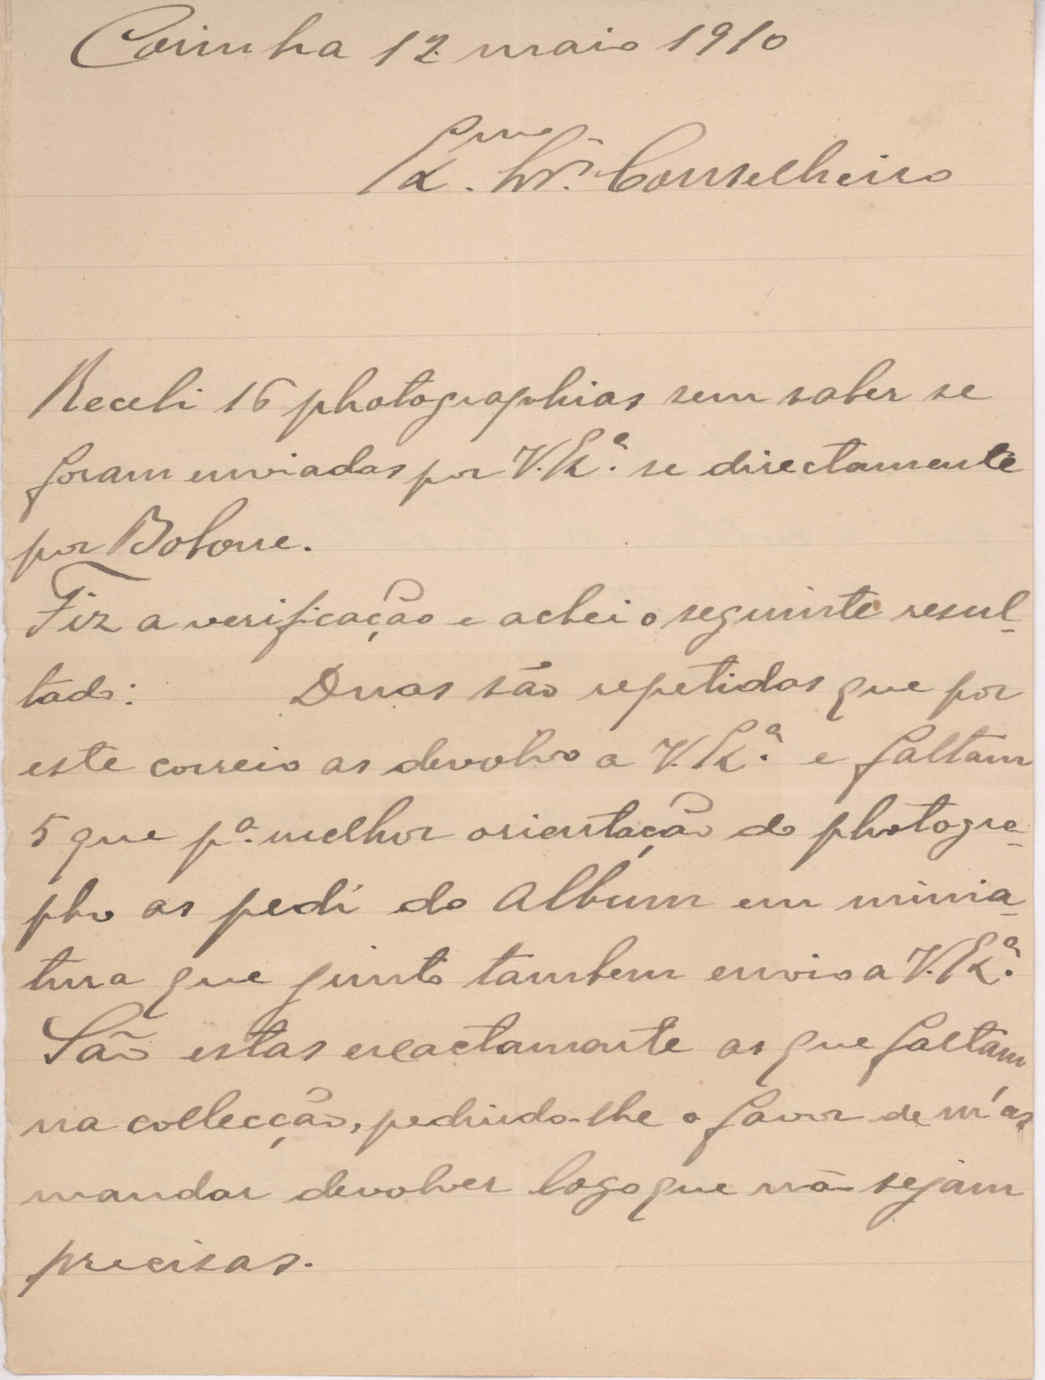 Coimbra 12 maio 1910
Ex.mo Sr. Conselheiro
Recebi 16 photographias sem saber se
foram enviadas por V. Ex.ª se directamente
por Bobone.
Fiz a verificação e achei o seguinte resul-
tado: Duas são repetidas que por
este correio as devolvo a V. Ex.ª e faltam
5 que p.ª melhor orientação do photogra-
pho as pedi do album em minia-
tura que junto tambem envio a V. Ex.ª
São estas exactamente as que faltam
na collecção, pedindo-lhe o favor de m'as
mandar devolver logo que não sejam
precisas.